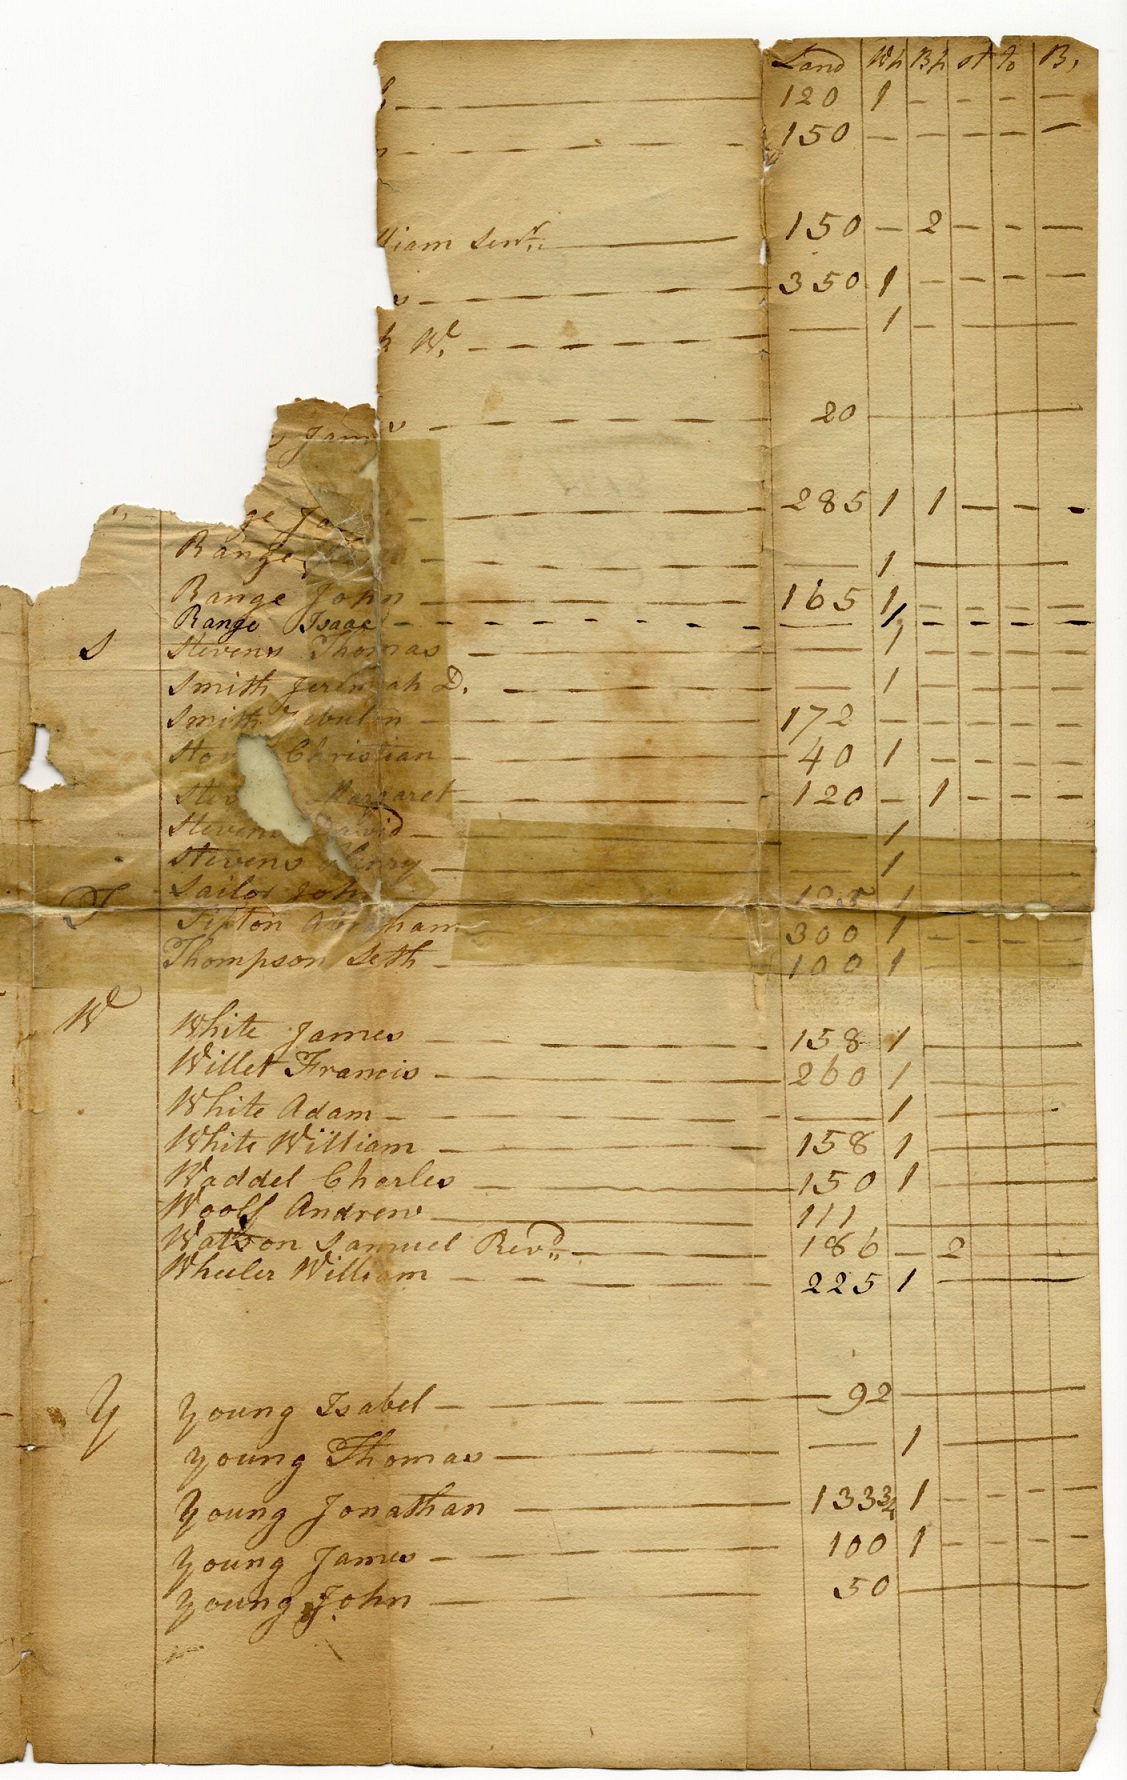 Land Wh Bh st to B,
120 1 - - - -
150 - - - - -
liam Senr. 150 - 2 - - -
350 1 - - - -
W. 1 -
20
James
285 1 1 - - -
Range 1
Range John 165 1 - - - -
Range Isaac 1 - - - -
S Stevens Thomas 1 - - - -
Smith Jeremiah D. 1 - - - -
Smith Zebulon 172 - - - - -
Christian 40 1 - - - -
Margaret 120 - 1 - - -
Stevens David 1
Stevens Henry 1
Sailor John 125 1
T Tipton Abraham 300 1 - - - -
Thompson Seth 100 1
W White James 158 1
Willet Francis 260 1
White Adam 1
White William 158 1
Waddel Charles 150 1
Woolf Andrew 111
Watson Samuel Revd. 186 - 2
Wheeler William 225 1
Y Young Isabel 92
Young Thomas 1
Young Jonathan 133 3/4 1 - - - -
Young James 100 1 - - - -
Young John 50